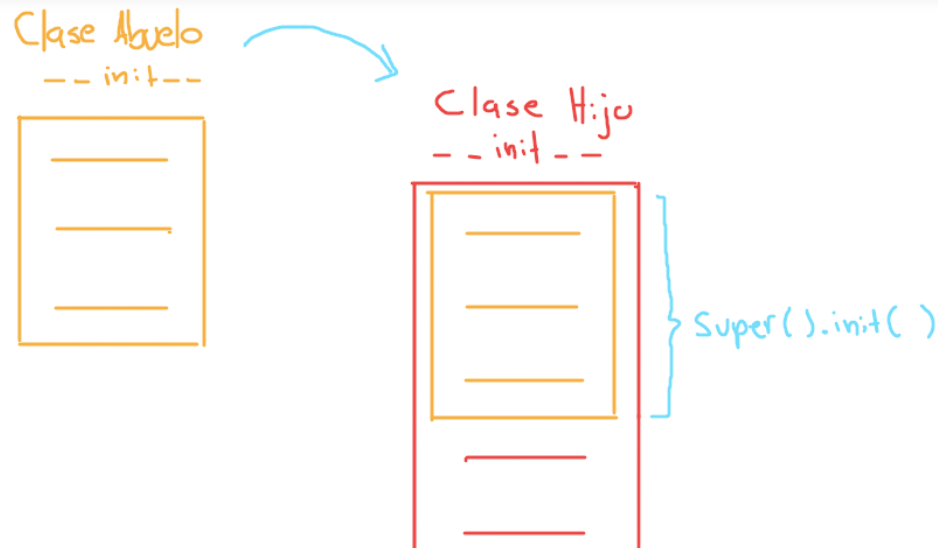 Clase Abuelo
-- init--
Clase Hijo
-- init --
Super().init( )